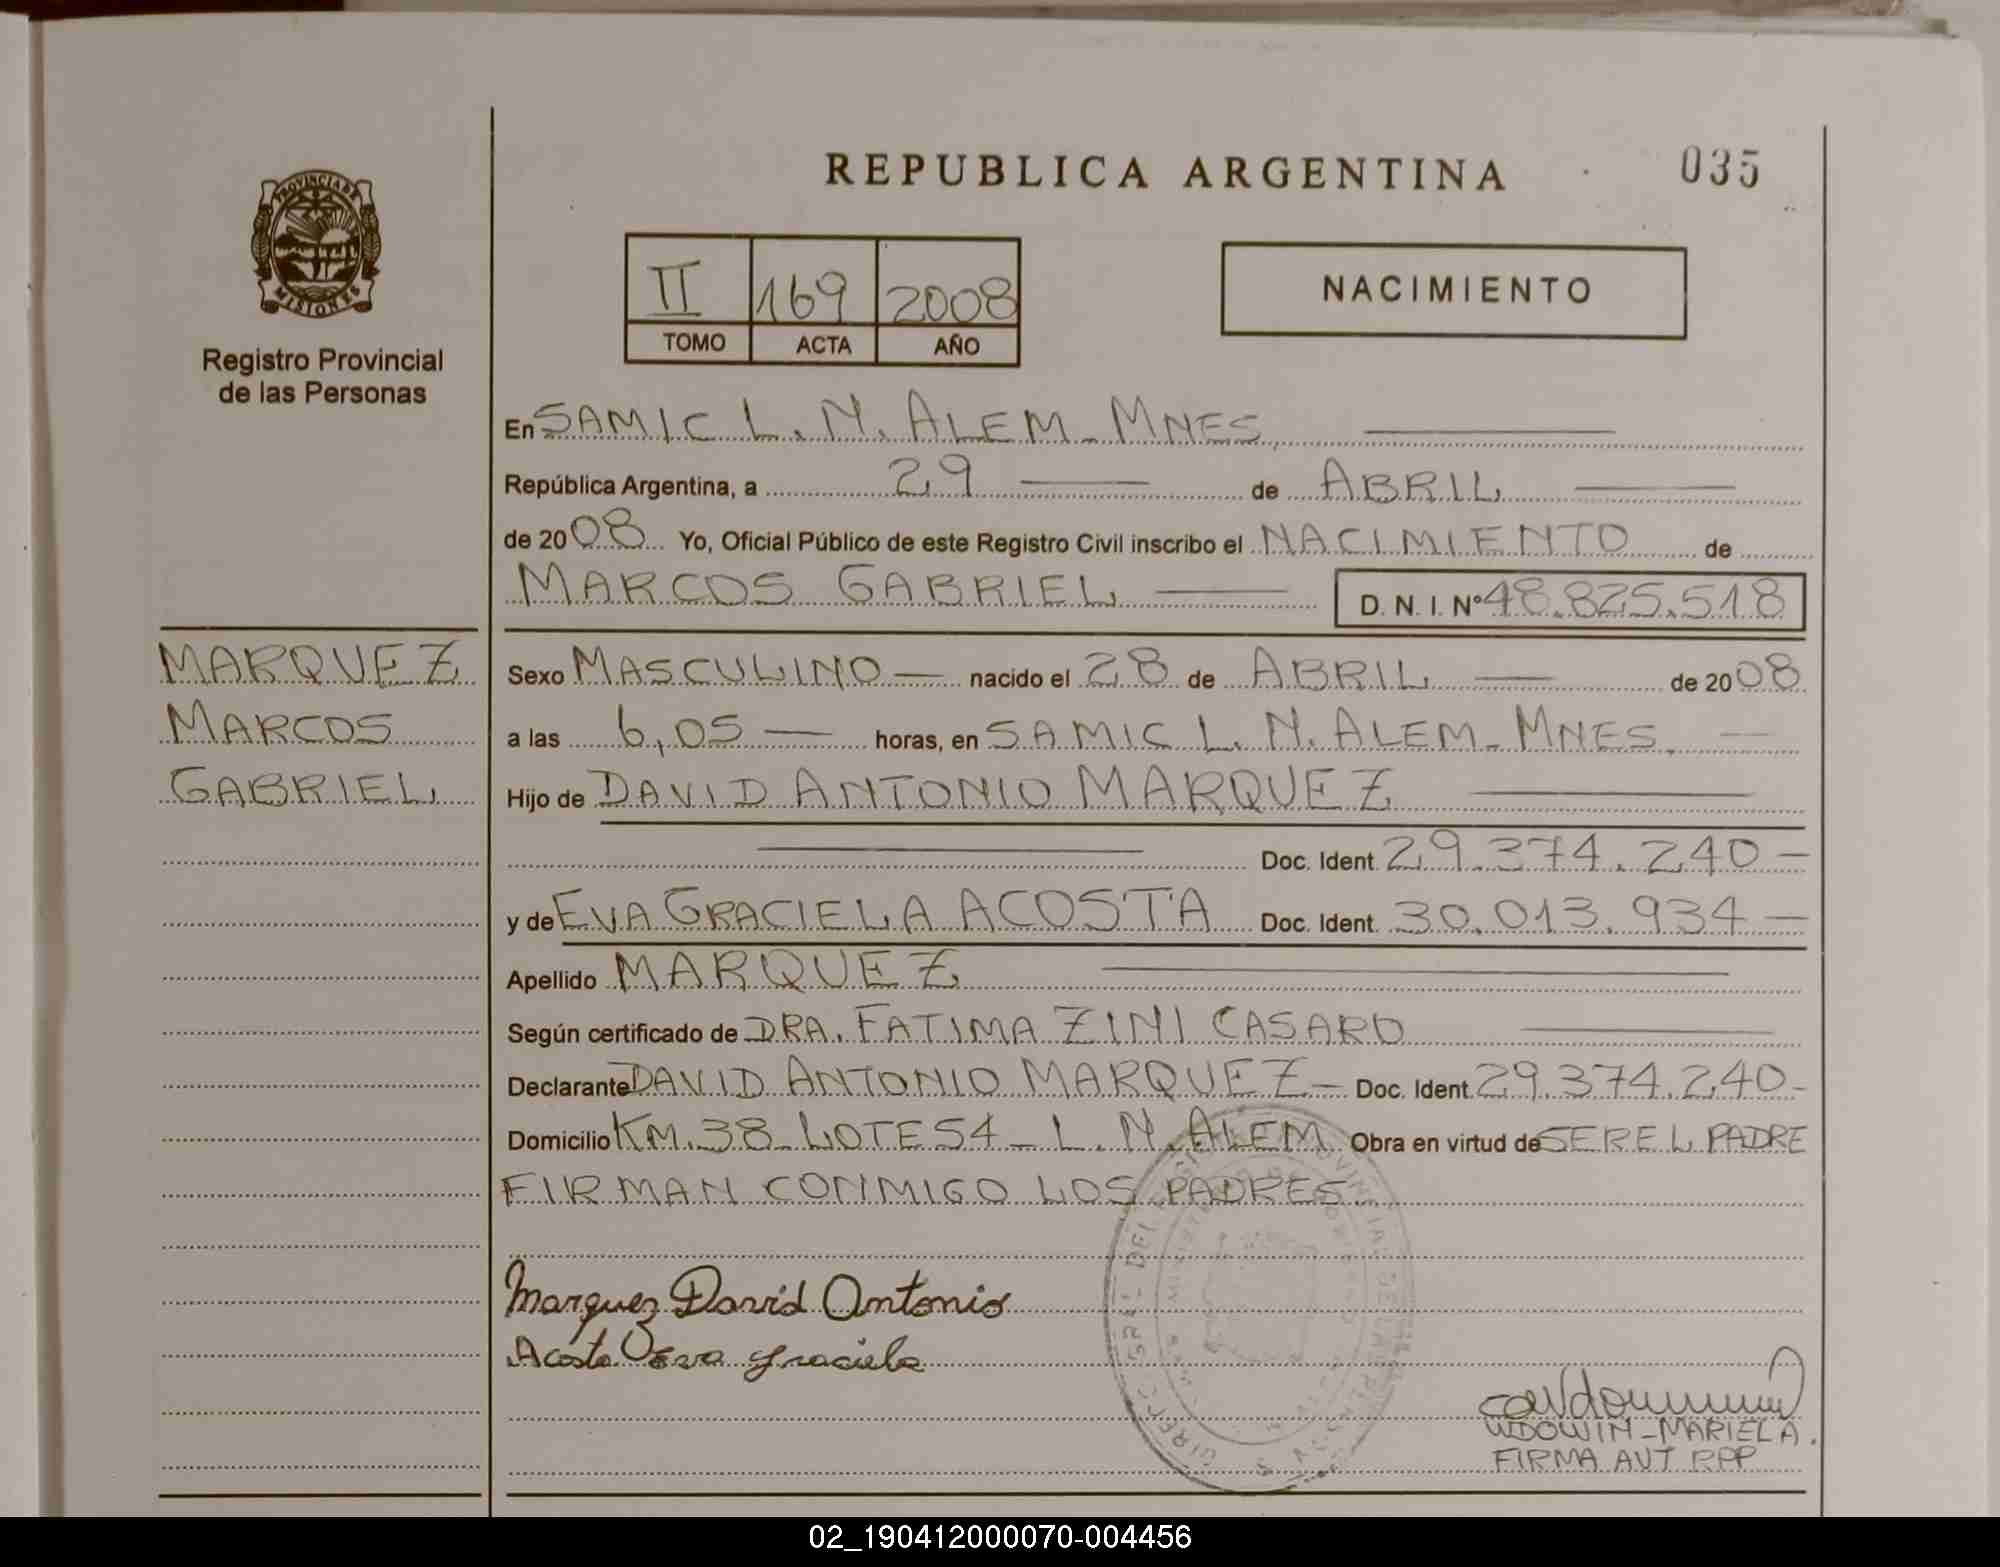 REPUBLICA ARGENTINA
035
PROVINCIA DE
MISIONES
Registro Provincial
de las Personas
II 169 2008
TOMO ACTA AÑO
NACIMIENTO
En SAMIC L. N. ALEM - MNES,
República Argentina, a 29 de ABRIL
de 2008 Yo, Oficial Público de este Registro Civil inscribo el NACIMIENTO de
MARCOS GABRIEL D. N. I. Nº 48.825.518
MARQUEZ
MARCOS
GABRIEL
Sexo MASCULINO nacido el 28 de ABRIL de 2008
a las 6,05 horas, en SAMIC L. N. ALEM - MNES,
Hijo de DAVID ANTONIO MARQUEZ
Doc. Ident. 29.374.240
y de EVA GRACIELA ACOSTA Doc. Ident. 30.013.934
Apellido MARQUEZ
Según certificado de DRA. FATIMA ZINI CASARO
Declarante DAVID ANTONIO MARQUEZ Doc. Ident. 29.374.240
Domicilio KM. 38 - LOTE 54 - L. N. ALEM Obra en virtud de SER EL PADRE
FIRMAN CONMIGO LOS PADRES
Marquez David Antonio
Acosta Eva Graciela
WDOWIN - MARIELA.
FIRMA AUT RPP
02_190412000070-004456